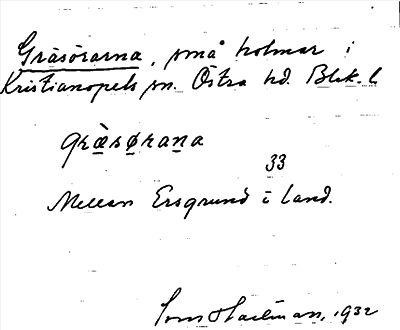 Gräsörarna, små holmar i
Kristianopels sn. Östra hd. Blek. l
græ̀søṛana
33
Mellan Ersgrund i land.
1932